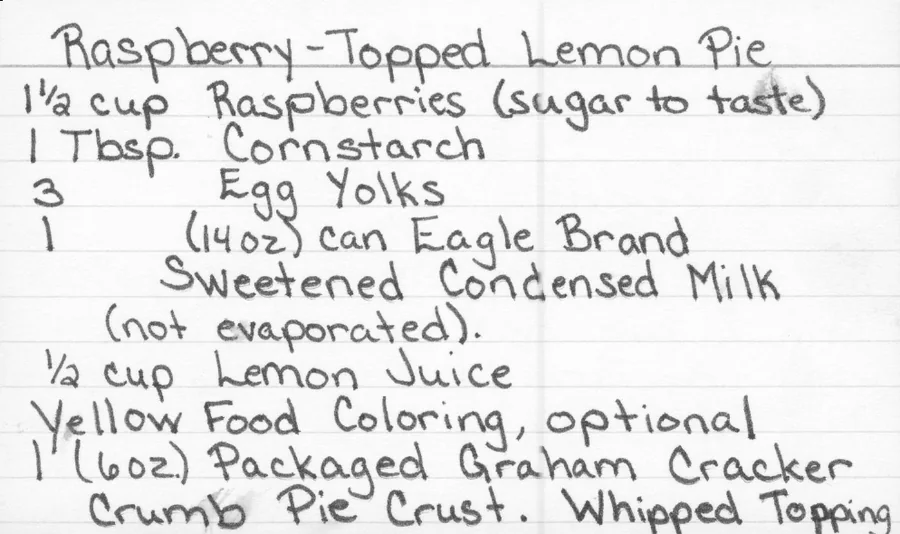 Raspberry-Topped Lemon Pie
1 1/2 cup Raspberries (sugar to taste)
1 Tbsp. Cornstarch
3 Egg Yolks
1 (14oz) can Eagle Brand
Sweetened Condensed Milk
(not evaporated).
1/2 cup Lemon Juice
Yellow Food Coloring, optional
1 (6oz.) Packaged Graham Cracker
Crumb Pie Crust. Whipped Topping